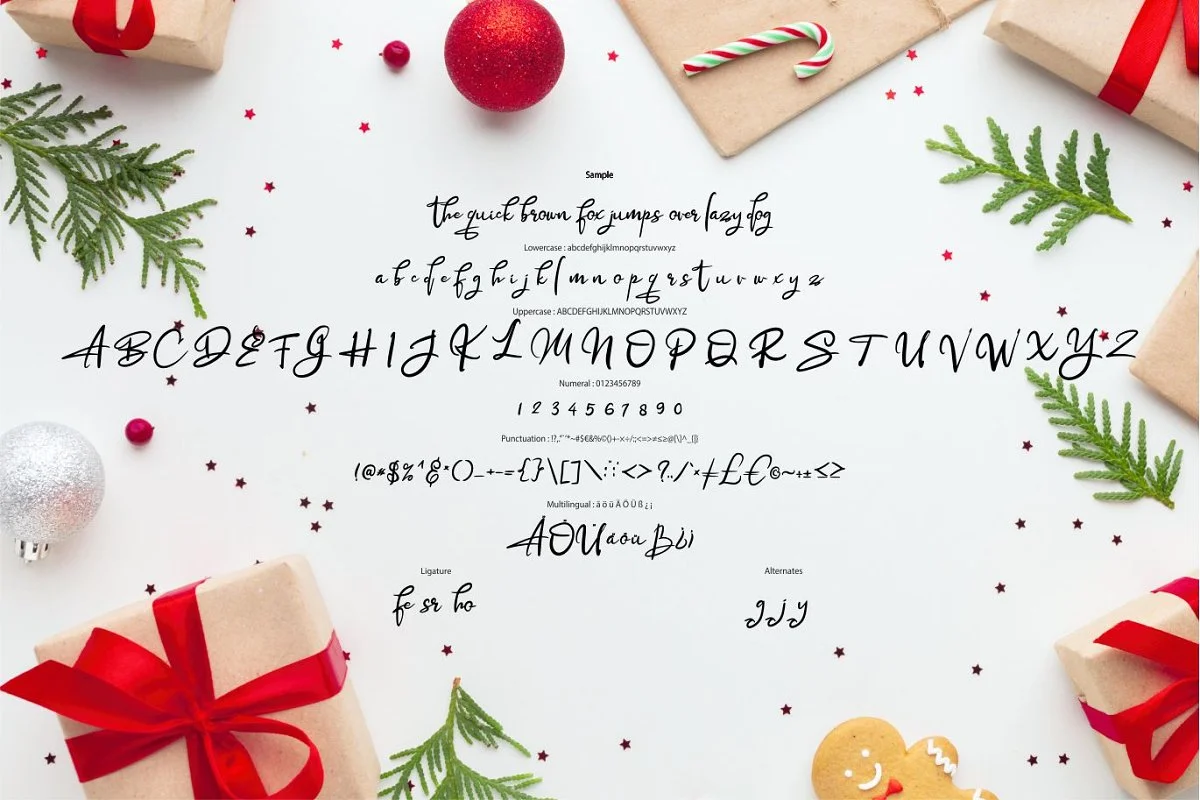 Sample
the quick brown fox jumps over lazy dog
Lowercase : abcdefghijklmnopqrstuvwxyz
a b c d e f g h i j k l m n o p q r s t u v w x y z
Uppercase : ABCDEFGHIJKLMNOPQRSTUVWXYZ
A B C D E F G H I J K L M N O P Q R S T U V W X Y Z
Numeral : 0123456789
1 2 3 4 5 6 7 8 9 0
Punctuation : !?,."´`*~#$€&%©()+-×÷/:;<=>≠≤≥@[\]^_{|}
!@#$%^&*()_+-={}\[]\:;<>?../`×≠£€©~+±≤≥
Multilingual : ä ö ü Ä Ö Ü ß ¿ ¡
ÄÖÜäöüß¿¡
Ligature Alternates
fe sr ho g j y